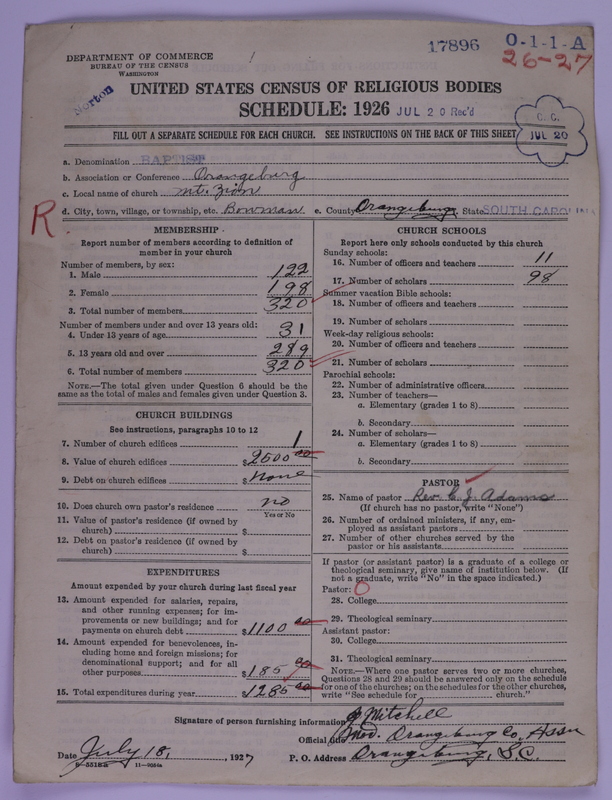 17896 O-1-1-A
26-27
DEPARTMENT OF COMMERCE
BUREAU OF THE CENSUS
WASHINGTON
Norton
UNITED STATES CENSUS OF RELIGIOUS BODIES
SCHEDULE: 1926 JUL 20 Rec'd
C. C.
JUL 20
FILL OUT A SEPARATE SCHEDULE FOR EACH CHURCH. SEE INSTRUCTIONS ON THE BACK OF THIS SHEET
a. Denomination BAPTIST
b. Association or Conference Orangeburg
c. Local name of church Mt. Zion
R. d. City, town, village, or township, etc. Bowman e. County Orangeburg, State SOUTH CAROLINA
MEMBERSHIP
Report number of members according to definition of
member in your church
Number of members, by sex:
1. Male 122
2. Female 198
3. Total number of members 320
Number of members under and over 13 years old:
4. Under 13 years of age 31
5. 13 years old and over 289
6. Total number of members 320
NOTE.—The total given under Question 6 should be
same as the total of males and females given under Question 3.
CHURCH BUILDINGS
See instructions, paragraphs 10 to 12
7. Number of church edifices 1
8. Value of church edifices $2500 00
9. Debt on church edifices $None
10. Does church own pastor's residence no
Yes or No
11. Value of pastor's residence (if owned by
church) $
12. Debt on pastor's residence (if owned by
church) $
EXPENDITURES
Amount expended by your church during last fiscal year
13. Amount expended for salaries, repairs,
and other running expenses; for im-
provements or new buildings; and for
payments on church debt $1100 00
14. Amount expended for benevolences, in-
cluding home and foreign missions; for
denominational support; and for all
other purposes $185 00
15. Total expenditures during year $1285 00
CHURCH SCHOOLS
Report here only schools conducted by this church
Sunday schools:
16. Number of officers and teachers 11
17. Number of scholars 98
Summer vacation Bible schools:
18. Number of officers and teachers
19. Number of scholars
Week-day religious schools:
20. Number of officers and teachers
21. Number of scholars
Parochial schools:
22. Number of administrative officers
23. Number of teachers—
a. Elementary (grades 1 to 8)
b. Secondary
24. Number of scholars—
a. Elementary (grades 1 to 8)
b. Secondary
PASTOR
25. Name of pastor Rev. C. J. Adams
(If church has no pastor, write "None")
26. Number of ordained ministers, if any, em-
ployed as assistant pastors
27. Number of other churches served by the
pastor or his assistants
If pastor (or assistant pastor) is a graduate of a college or
theological seminary, give name of institution below. (If
not a graduate, write "No" in the space indicated.)
Pastor: O
28. College
29. Theological seminary
Assistant pastor:
30. College
31. Theological seminary
NOTE.—Where one pastor serves two or more churches,
Questions 28 and 29 should be answered only on the schedule
for one of the churches; on the schedules for the other churches,
write "See schedule for church."
Signature of person furnishing information Mitchell
Official title Mod. Orangeburg Co, Assn
Date July 18, 1927 P. O. Address Orangeburg, S.C.